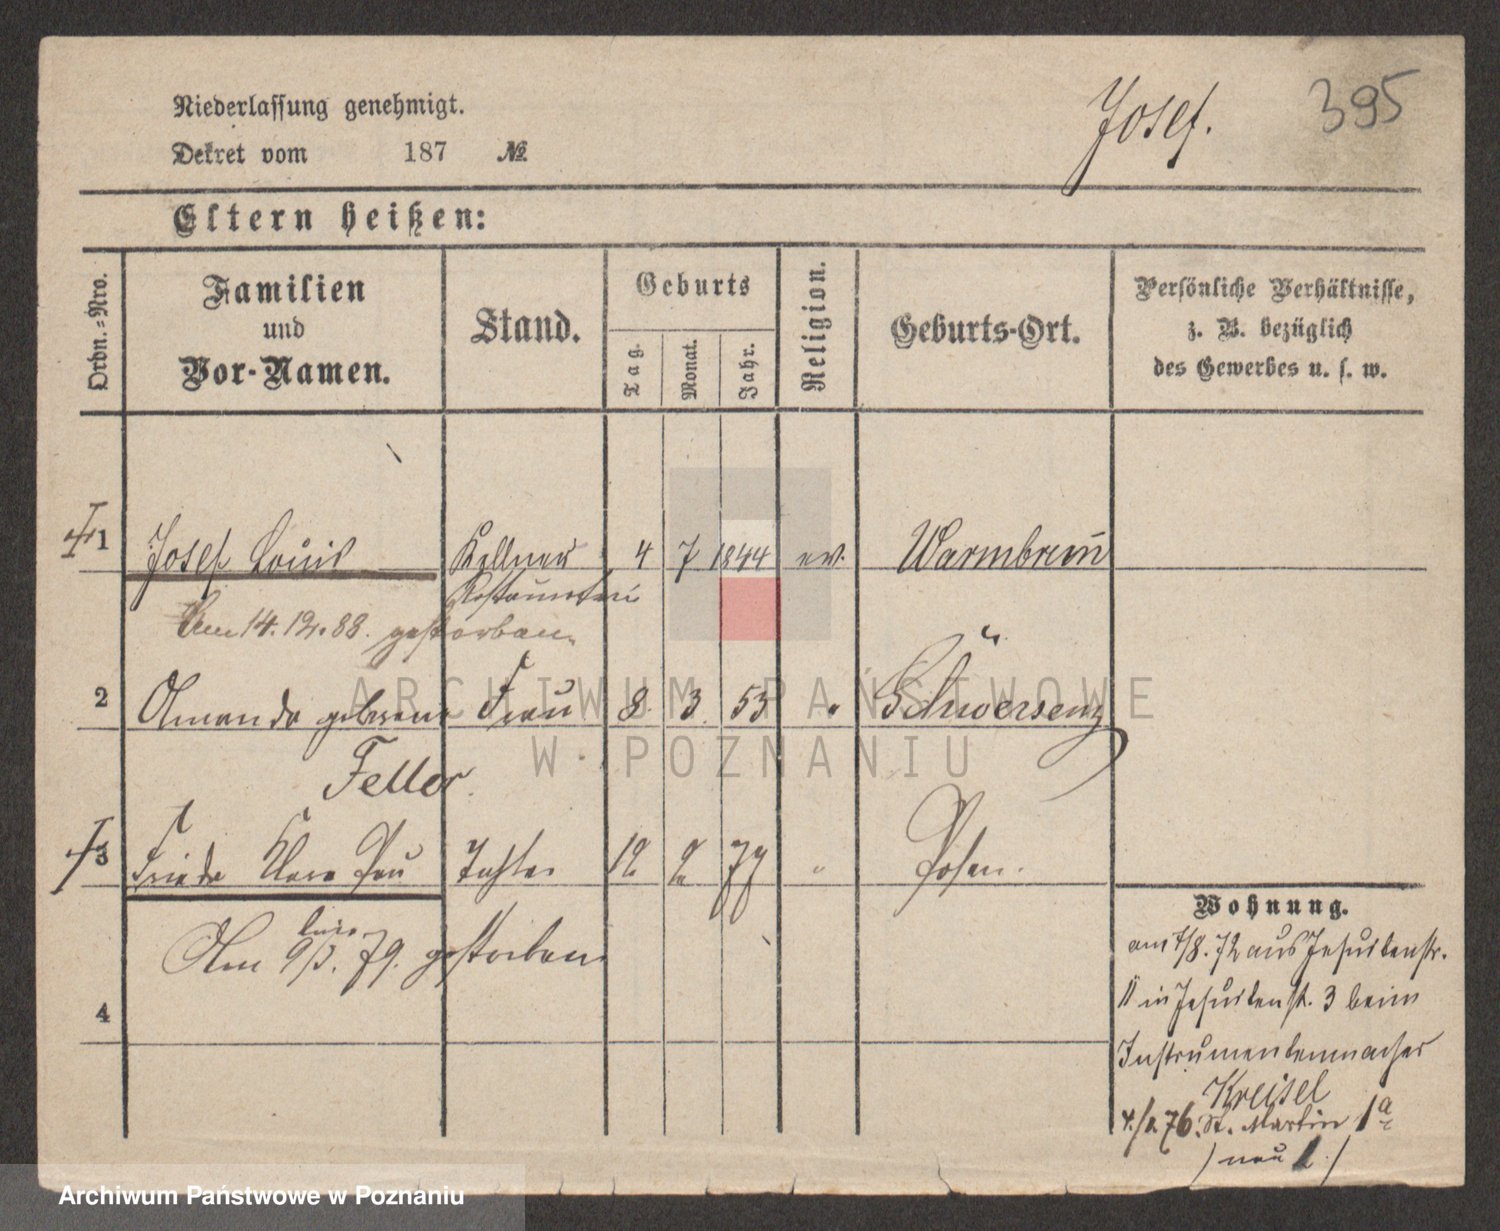 Josef. 395
Niederlassung genehmigt.
Dekret vom 187 №
Eltern heißen:
Ordn.=Nro.
Familien
und
Vor-Namen.
Stand.
Geburts
Tag.
Monat.
Jahr.
Religion.
Geburts-Ort.
Persönliche Verhältnisse,
z. B. bezüglich
des Gewerbes u. s. w.
1 Josef Louis Kellner 4 7 1844 ev. Warmbrunn
Restaurateur
Am 14.12.88. gestorben.
2 Amanda geborene Frau 8. 3. 53 " Schwersenz
Feller.
3 Frieda Klara Tochter 12 2 79 " Posen.
Am 9/3. 79. gestorben
4
Wohnung.
am 7/8. 72 aus Jesuitenstr.
11 in Jesuitenst. 3 beim
Instrumentenmacher
Kreisel
76. St. Martin 1a
(neu)
ARCHIWUM PAŃSTWOWE
W POZNANIU
Archiwum Państwowe w Poznaniu